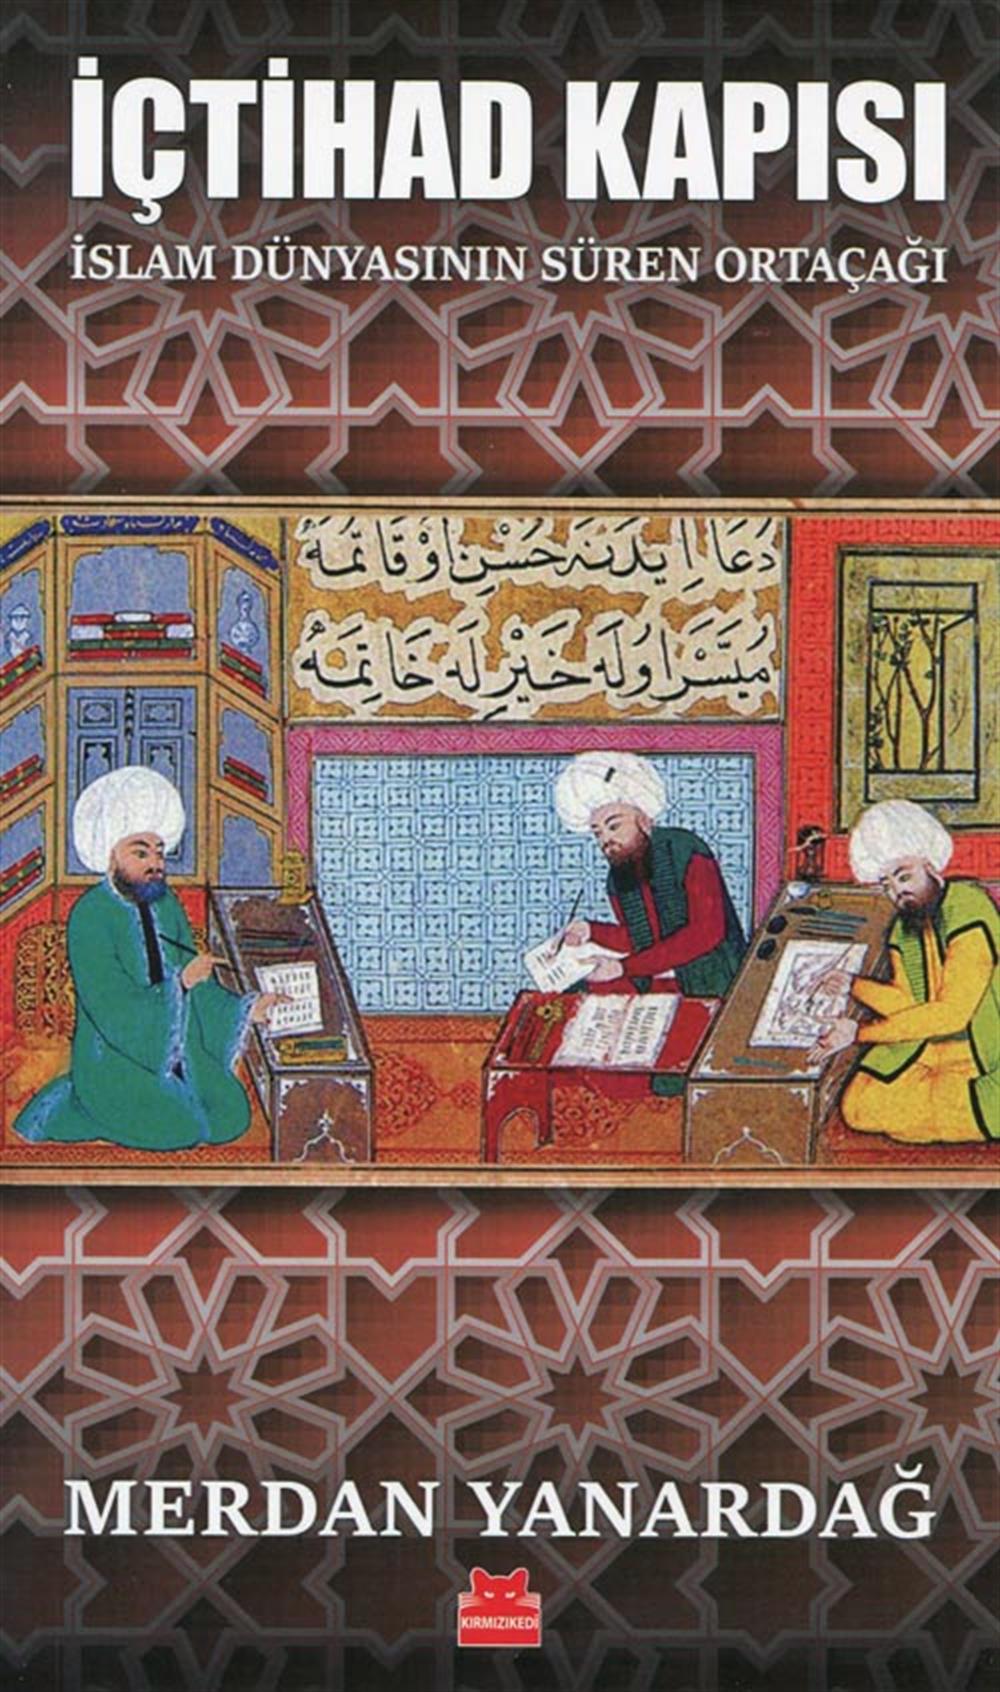 İÇTİHAD KAPISI
İSLAM DÜNYASININ SÜREN ORTAÇAĞI
دُعَا اِيدَنَه حُسْنِ اَوْقَاتمَهُ
مُيَسَّرْ اُولَه خَيْرِلَه خَاتِمَهُ
MERDAN YANARDAĞ
KIRMIZIKEDİ